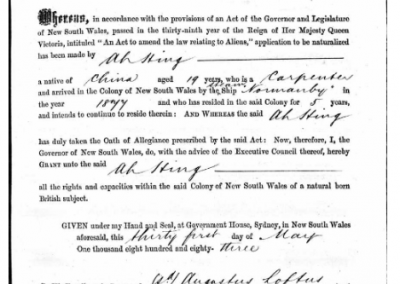 Whereas, in accordance with the provisions of an Act of the Governor and Legislature
of New South Wales, passed in the thirty-ninth year of the Reign of Her Majesty Queen
Victoria, intituled "An Act to amend the law relating to Aliens," application to be naturalized
has been made by Ah Hing
a native of China aged 19 years, who is a Carpenter
and arrived in the Colony of New South Wales by the Ship Normanby
in the year 1877 and who has resided in the said Colony for 5 years,
and intends to continue to reside therein: AND WHEREAS the said Ah Hing
has duly taken the Oath of Allegiance prescribed by the said Act: Now, therefore, I, the
Governor of New South Wales, do, with the advice of the Executive Council thereof, hereby
GRANT unto the said
Ah Hing
all the rights and capacities within the said Colony of New South Wales of a natural born
British subject.
GIVEN under my Hand and Seal, at Government House, Sydney, in New South Wales
aforesaid, this thirty first day of May
One thousand eight hundred and eighty- three
Augustus Loftus